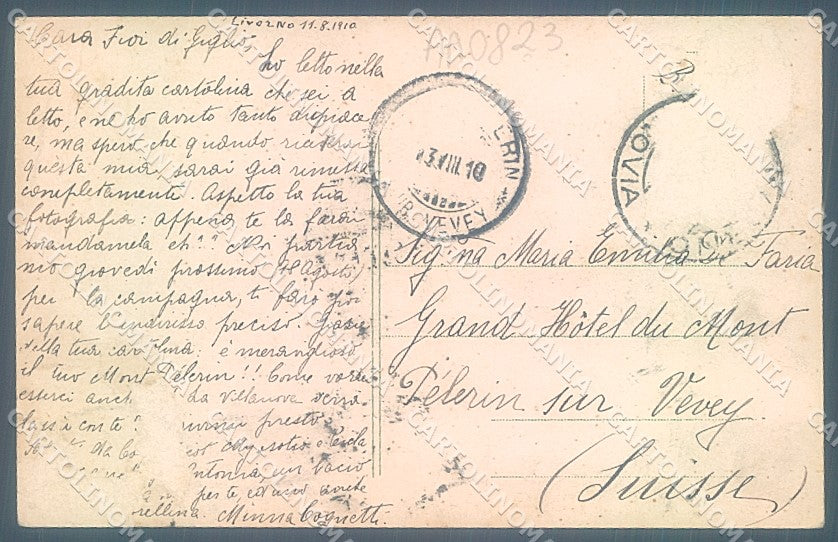 Livorno 11.8.1910
AA0823
Cara Fior di Giglio,
ho letto nella
tua gradita cartolina che sei a
letto, e ne ho avuto tanto dispiace
re, ma spero che quando riceverai
questa mia sarai già rimessa
completamente. Aspetto la tua
fotografia: appena te la farai
mandamela eh!! Noi partia
mo giovedì prossimo (18 Agosto)
per la campagna, ti farò poi
sapere l'indirizzo preciso. Grazie
della tua cartolina: è meraviglioso
il tuo Mont Pélerin!! Come vorrei
esserci anch
lassù con te presto
un bacio
per te, ed uno anche
Minna Cognetti.
ERIN
13.VIII.10
VEVEY
OVIA
Sig.na Maria Emilia De Faria
Grand Hôtel du Mont
Pélerin sur Vevey.
(Suisse)
CARTOLINOMANIA